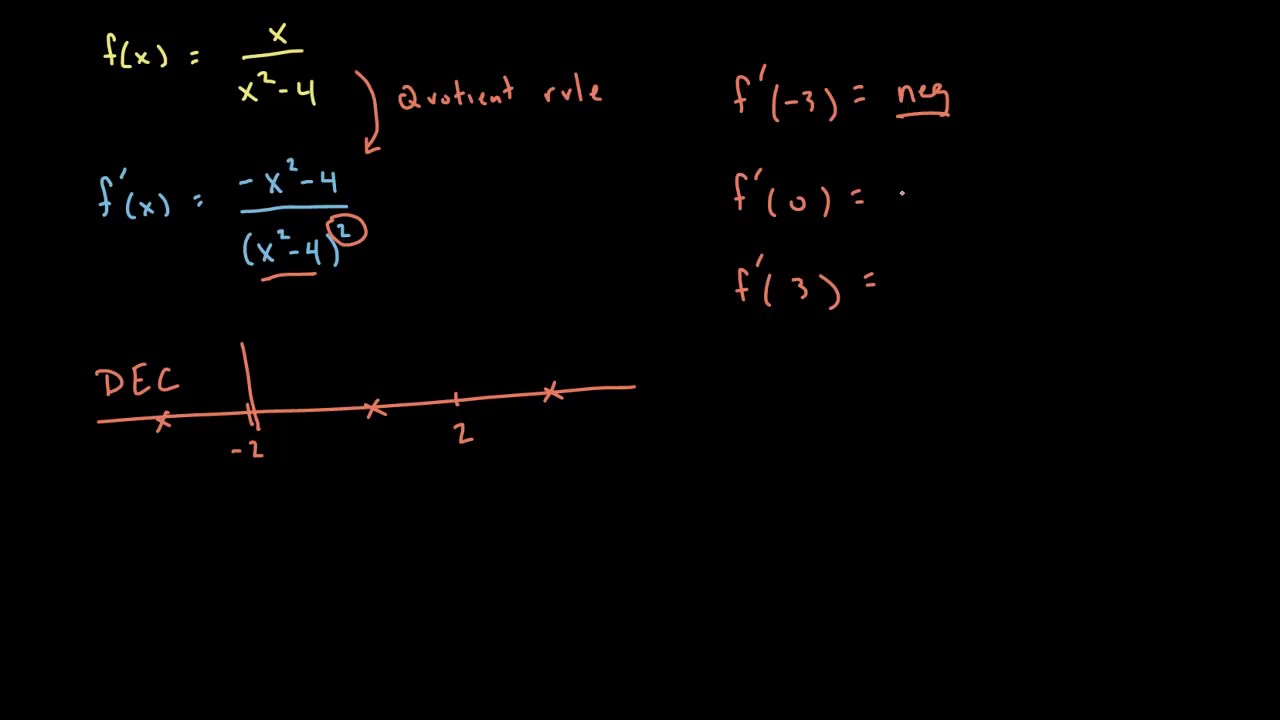 f(x) = x / (x² - 4)
Quotient rule
f'(x) = (-x² - 4) / (x² - 4)²
f'(-3) = neg
f'(0) =
f'(3) =
DEC
-2 2